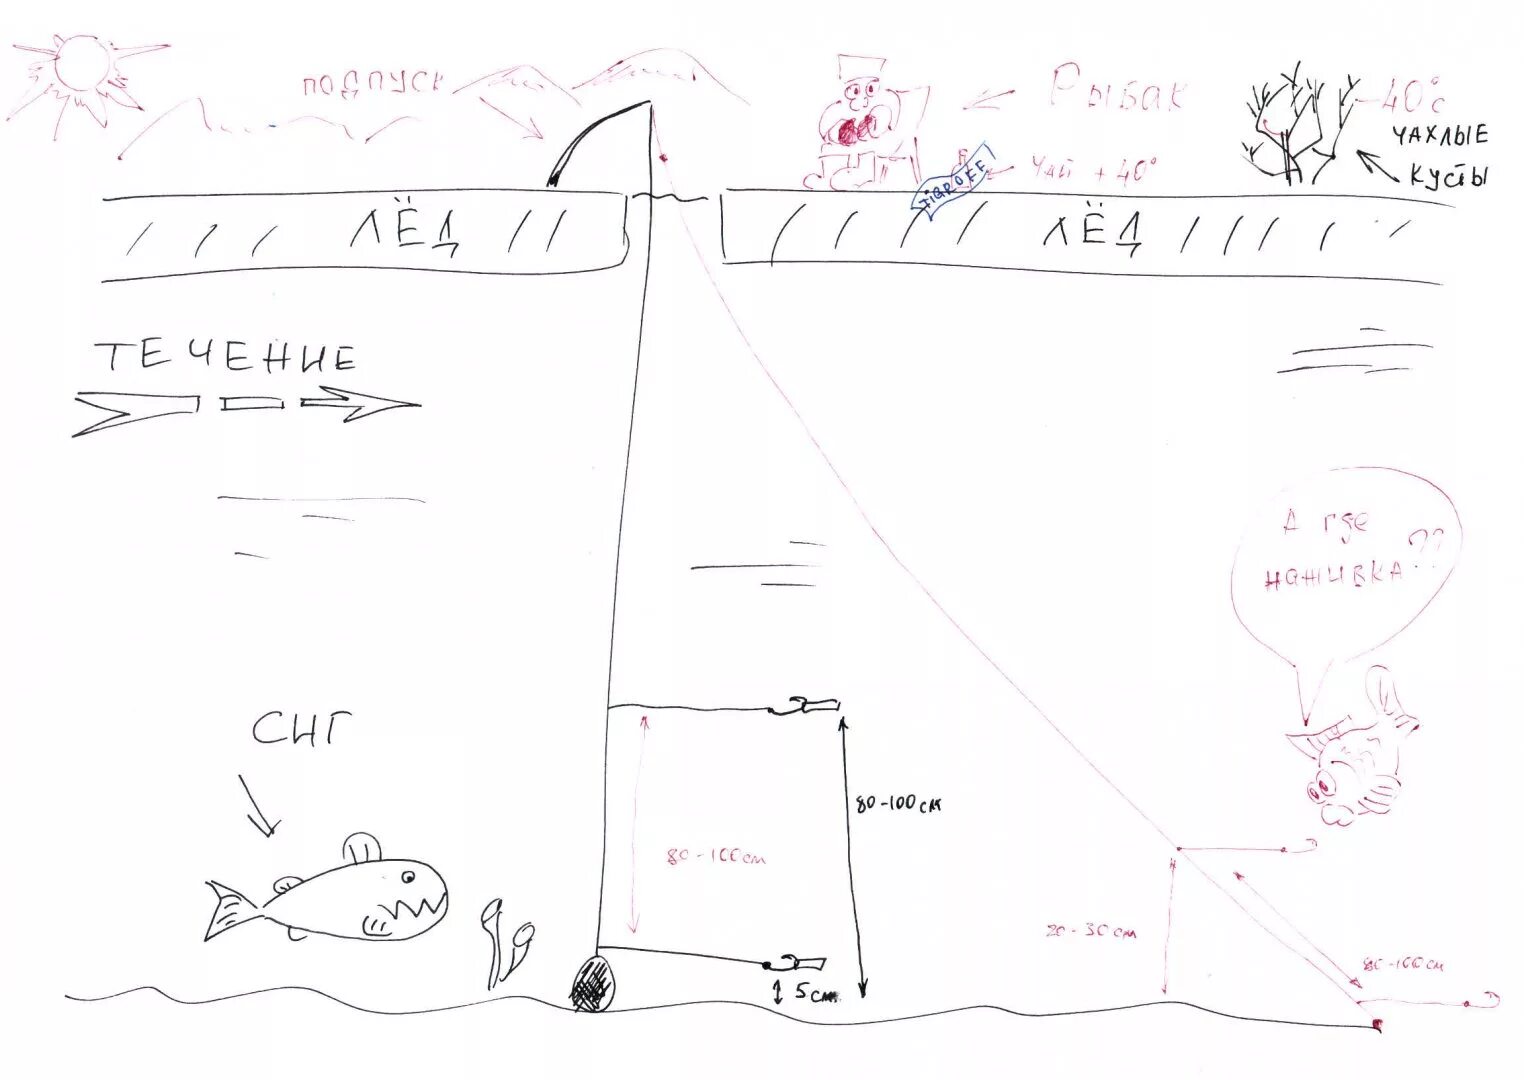 ПОДПУСК
РЫБАК
-40°C
ЧАХЛЫЕ
КУСТЫ
ЧАЙ + 40°
JIGPOFF
ЛЁД
ЛЁД
ТЕЧЕНИЕ
А где
наживка??
СНГ
80-100 см
80-100 см
20-30 см
80-100 см
5 см